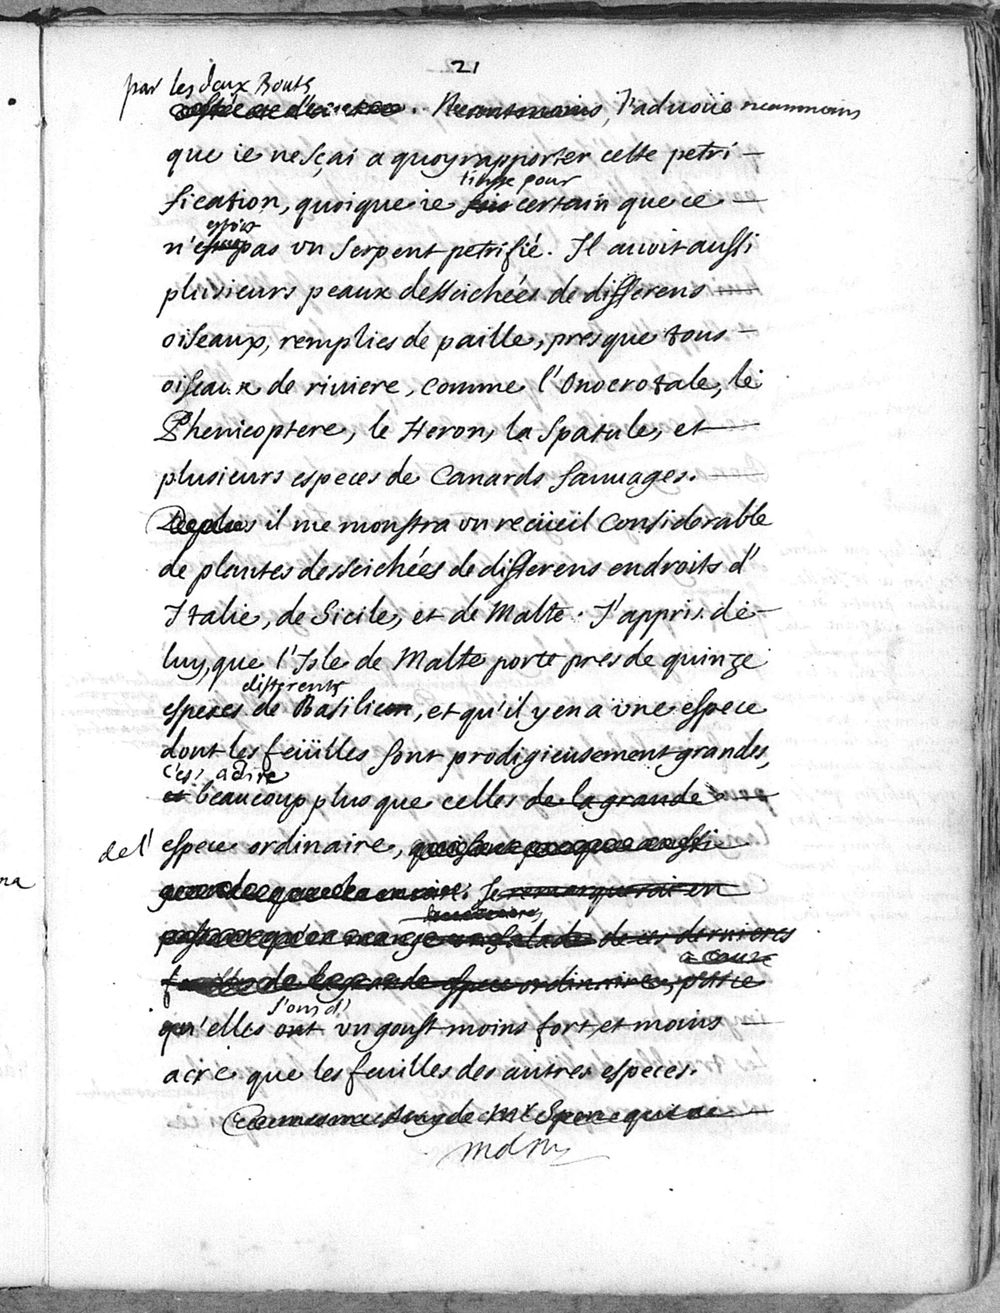 21
par les deux Bouts
Neantmoins, J'aduoüe neanmoins
que ie ne sçai a quoy rapporter cette petri-
tinsse pour
fication, quoique ie sois certain que ce
n'est pas vn Serpent petrifié. Il auoit aussi
plusieurs peaux desseichées de differens
oiseaux, remplies de paille, presque tous
oiseaux de riviere, comme l'Onocrotale, le
Phenicoptere, le Heron, la Spatule, et
plusieurs especes de Canards Sauuages.
De plus il me monstra vn recüeil Considerable
de plantes desseichées de differens endroits d'
Italie, de Sicile, et de Malte. J'appris de
luy, que l'Isle de Malte porte pres de quinze
differents
especes de Basilicon, et qu'il y en a vne espece
dont les feüilles sont prodigieusement grandes,
c'est a dire
et beaucoup plus que celles de la grande
de l' espece ordinaire,
Je remarquerai en
qu'on mange en salade de ces dernieres
a cause
de la grande espece ordinaire,
qu'elles ont vn goust moins fort et moins
acre que les feuilles des autres especes.
na